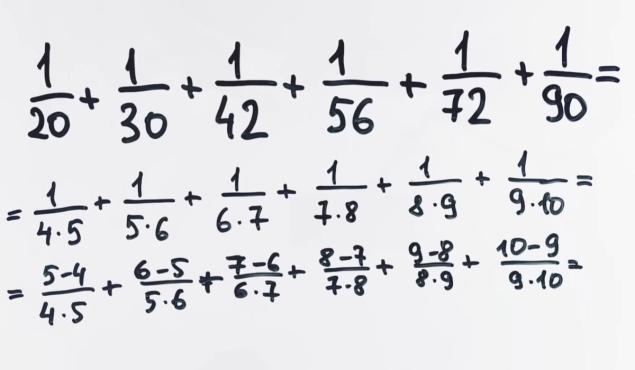 1/20 + 1/30 + 1/42 + 1/56 + 1/72 + 1/90 =
= 1/4·5 + 1/5·6 + 1/6·7 + 1/7·8 + 1/8·9 + 1/9·10 =
= 5-4/4·5 + 6-5/5·6 + 7-6/6·7 + 8-7/7·8 + 9-8/8·9 + 10-9/9·10 =